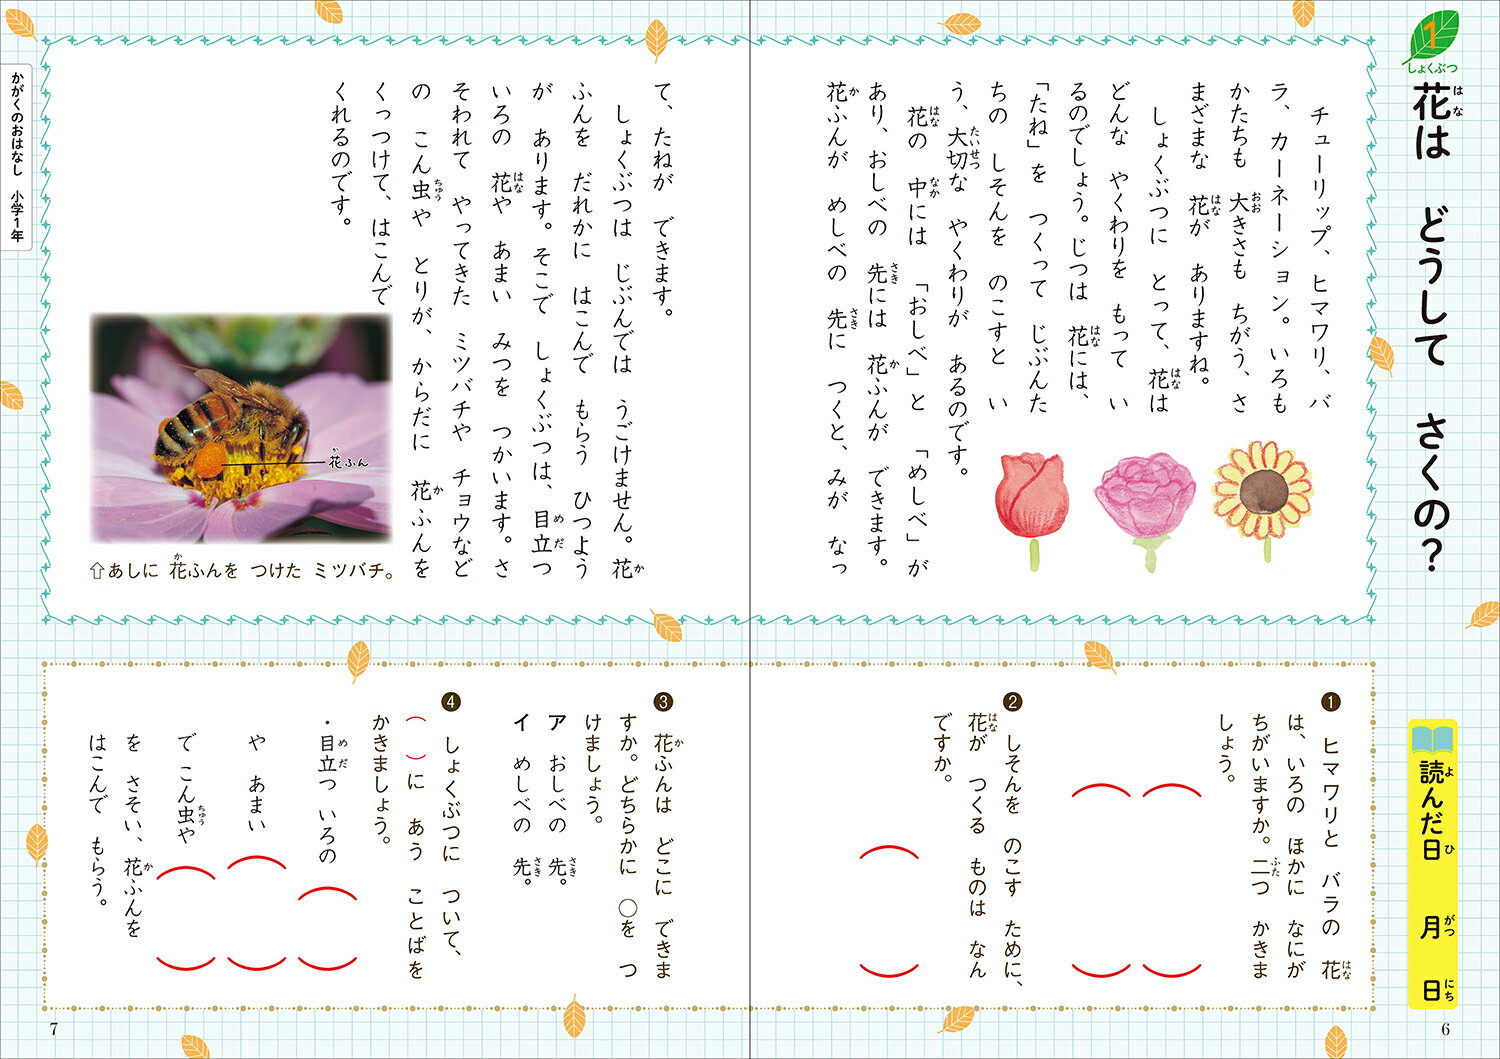 1
しょくぶつ
花は どうして さくの？
はな
チューリップ、ヒマワリ、バ
ラ、カーネーション。いろも
かたちも 大きさも ちがう、さ
おお
まざまな 花が ありますね。
はな
しょくぶつに とって、花は
はな
どんな やくわりを もって い
るのでしょう。じつは 花には、
はな
「たね」を つくって じぶんた
ちの しそんを のこすと い
う、大切な やくわりが あるのです。
たいせつ
花の 中には 「おしべ」と 「めしべ」が
はな なか
あり、おしべの 先には 花ふんが できます。
さき か
花ふんが めしべの 先に つくと、みが なっ
か さき
て、たねが できます。
しょくぶつは じぶんでは うごけません。花
か
ふんを だれかに はこんで もらう ひつよう
が あります。そこで しょくぶつは、目立つ
めだ
いろの 花や あまい みつを つかいます。さ
はな
そわれて やってきた ミツバチや チョウなど
の こん虫や とりが、からだに 花ふんを
ちゅう か
くっつけて、はこんで
くれるのです。
花ふん
か
⇧あしに 花ふんを つけた ミツバチ。
か
かがくのおはなし 小学1年
読んだ日 月 日
よ ひ がつ にち
❶ ヒマワリと バラの 花
はな
は、いろの ほかに なにが
ちがいますか。二つ かきま
ふた
しょう。
（ ）
（ ）
❷ しそんを のこす ために、
花が つくる ものは なん
はな
ですか。
（ ）
❸ 花ふんは どこに できま
か
すか。どちらかに ○を つ
けましょう。
ア おしべの 先。
さき
イ めしべの 先。
さき
❹ しょくぶつに ついて、
（ ）に あう ことばを
かきましょう。
・目立つ いろの（ ）
めだ
や あまい（ ）
で こん虫や（ ）
ちゅう
を さそい、花ふんを
か
はこんで もらう。
6
7